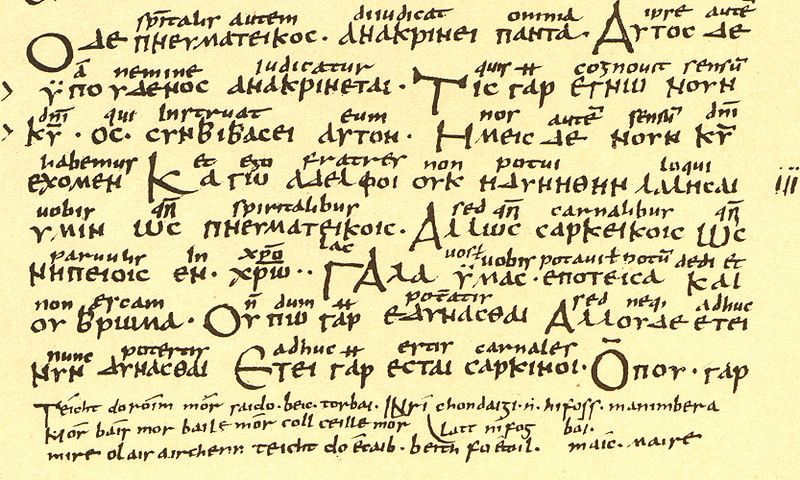 sp̅italis autem diiudicat omnia ipse aute̅
Ο ΔΕ ΠΝΕΥΜΑΤΕΙΚΟϹ · ΑΝΑΚΡΙΝΕΙ ΠΑΝΤΑ · ΑΥΤΟϹ ΔΕ
a nemine iudicatur quis cognouit sensu̅
ΫΠΟΥΔΕΝΟϹ ΑΝΑΚΡΙΝΕΤΑΙ · ΤΙϹ ΓΑΡ ΕΓΝΩ ΝΟΥΝ
dn̅i qui instruat eum nos aute̅ sensu̅ dn̅i
Κ̅Υ̅ · ΟϹ · ϹΥΝΒΙΒΑϹΕΙ ΑΥΤΟΝ · ΗΜΕΙϹ ΔΕ ΝΟΥΝ Κ̅Υ̅
habemus et ego fratres non potui loqui
ΕΧΟΜΕΝ ΚΑΓΙΩ ΑΔΕΛΦΟΙ ΟΥΚ ΗΔΥΝΗΘΗΝ ΛΑΛΗϹΑΙ iii
uobis qn̅ spiritalibus sed qn̅ carnalibus qn̅
ΥΜΙΝ ΩϹ ΠΝΕΥΜΑΤΕΙΚΟΙϹ · ΑΛΛΩϹ ϹΑΡΚΕΙΚΟΙϹ ΩϹ
paruulis in xp̅o lac uos uobis potaui notu̅ dedi et
ΝΗΠΕΙΟΙϹ ΕΝ · Χ̅Ρ̅Ω̅ ·· ΓΑΛΑ ΫΜΑϹ · ΕΠΟΤΕΙϹΑ ΚΑΙ
non escam n̅ dum potestis sed neq; adhuc
ΟΥ ΒΡΩΜΑ · ΟΥΠΩ ΓΑΡ ΕΔΥΝΑϹΘΑΙ ΑΛΛΟΥΔΕ ΕΤΕΙ
nunc potestis adhuc estis carnales
ΝΥΝ ΔΥΝΑϹΘΑΙ ΕΤΕΙ ΓΑΡ ΕϹΤΑΙ ϹΑΡΚΙΝΟΙ · ΟΠΟΥ · ΓΑΡ
Teicht doróim mór saido · beic · torbai · INrí chondaigi · n · hifoss · manimbera
latt nífog bai ·
Mór báis mor baile mór coll ceille mór
mire olais airchenn teicht do ecaib · beith fo étoil · maic · maire